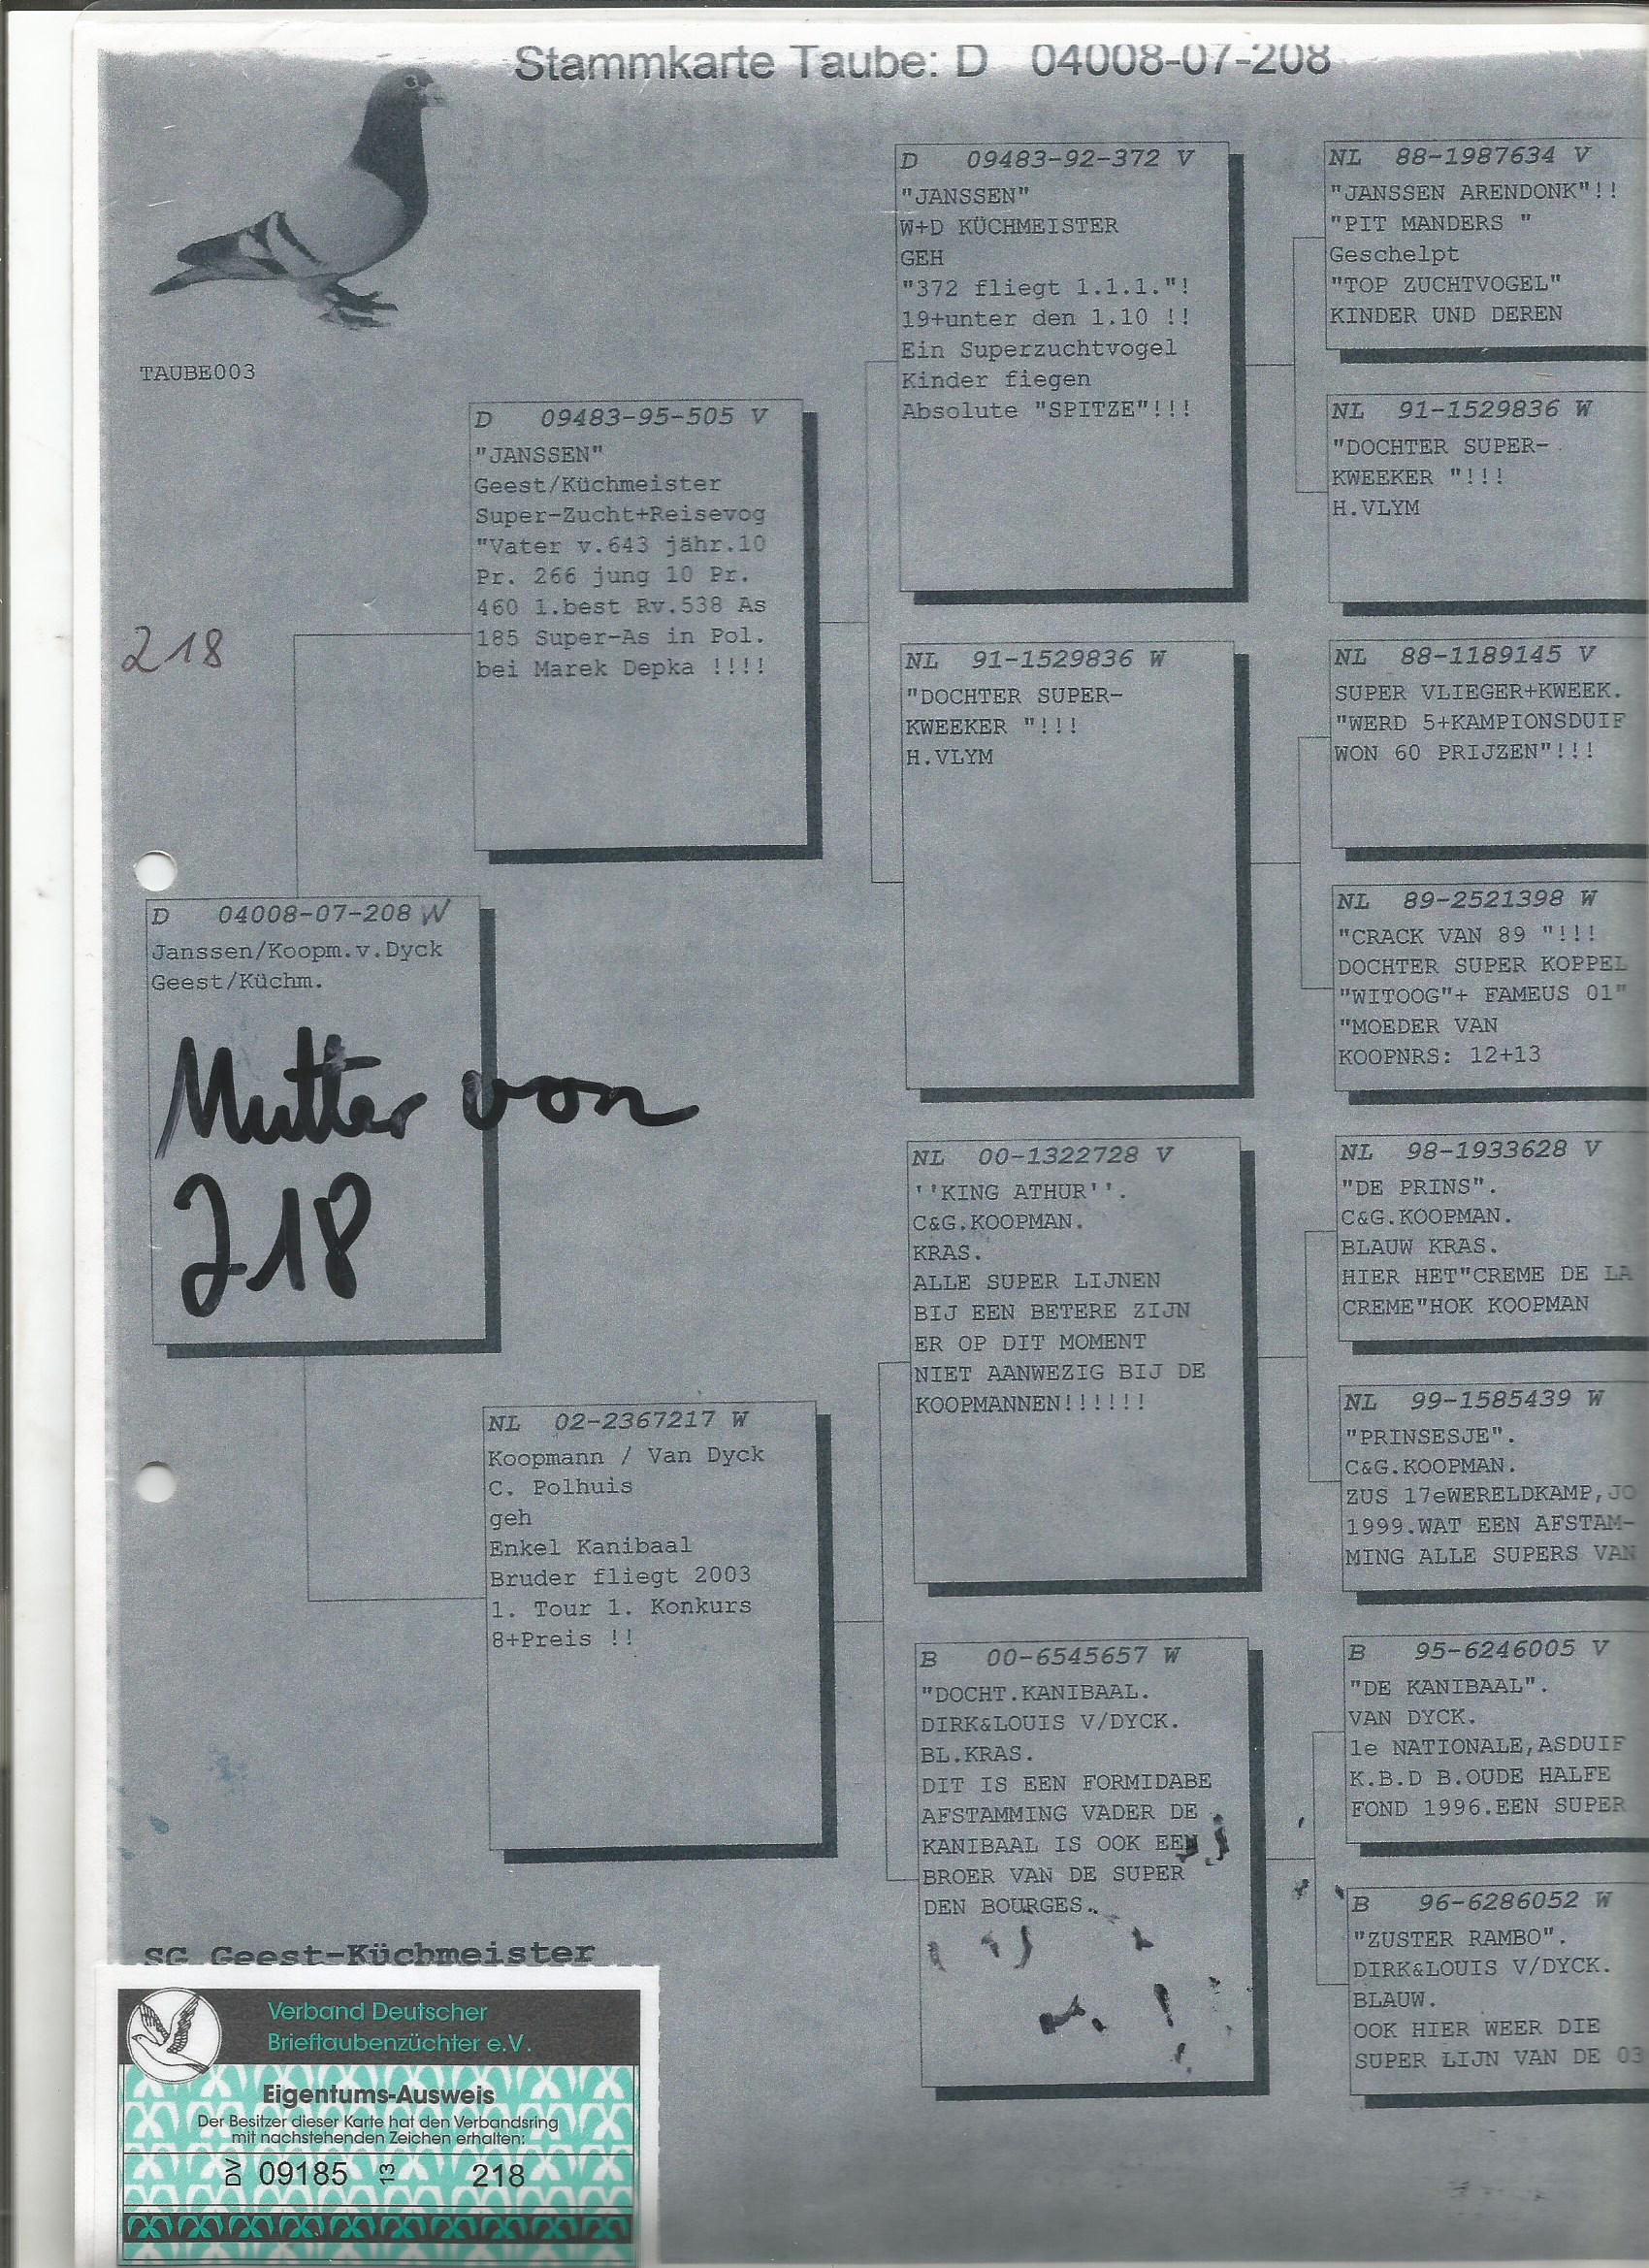 Stammkarte Taube: D 04008-07-208
TAUBE003
218
D 04008-07-208 W
Janssen/Koopm.v.Dyck
Geest/Küchm.
Mutter von
218
D 09483-95-505 V
"JANSSEN"
Geest/Küchmeister
Super-Zucht+Reisevog
"Vater v.643 jähr.10
Pr. 266 jung 10 Pr.
460 1.best Rv.538 As
185 Super-As in Pol.
bei Marek Depka !!!!
NL 02-2367217 W
Koopmann / Van Dyck
C. Polhuis
geh
Enkel Kanibaal
Bruder fliegt 2003
1. Tour 1. Konkurs
8+Preis !!
D 09483-92-372 V
"JANSSEN"
W+D KÜCHMEISTER
GEH
"372 fliegt 1.1.1."!
19+unter den 1.10 !!
Ein Superzuchtvogel
Kinder fiegen
Absolute "SPITZE"!!!
NL 91-1529836 W
"DOCHTER SUPER-
KWEEKER "!!!
H.VLYM
NL 00-1322728 V
''KING ATHUR''.
C&G.KOOPMAN.
KRAS.
ALLE SUPER LIJNEN
BIJ EEN BETERE ZIJN
ER OP DIT MOMENT
NIET AANWEZIG BIJ DE
KOOPMANNEN!!!!!!
B 00-6545657 W
"DOCHT.KANIBAAL.
DIRK&LOUIS V/DYCK.
BL.KRAS.
DIT IS EEN FORMIDABE
AFSTAMMING VADER DE
KANIBAAL IS OOK EEN
BROER VAN DE SUPER
DEN BOURGES.
NL 88-1987634 V
"JANSSEN ARENDONK"!!
"PIT MANDERS "
Geschelpt
"TOP ZUCHTVOGEL"
KINDER UND DEREN
NL 91-1529836 W
"DOCHTER SUPER-
KWEEKER "!!!
H.VLYM
NL 88-1189145 V
SUPER VLIEGER+KWEEK.
"WERD 5+KAMPIONSDUIF
WON 60 PRIJZEN"!!!
NL 89-2521398 W
"CRACK VAN 89 "!!!
DOCHTER SUPER KOPPEL
"WITOOG"+ FAMEUS 01"
"MOEDER VAN
KOOPNRS: 12+13
NL 98-1933628 V
"DE PRINS".
C&G.KOOPMAN.
BLAUW KRAS.
HIER HET"CREME DE LA
CREME"HOK KOOPMAN
NL 99-1585439 W
"PRINSESJE".
C&G.KOOPMAN.
ZUS 17eWERELDKAMP,JO
1999.WAT EEN AFSTAM-
MING ALLE SUPERS VAN
B 95-6246005 V
"DE KANIBAAL".
VAN DYCK.
1e NATIONALE,ASDUIF
K.B.D B.OUDE HALFE
FOND 1996.EEN SUPER
B 96-6286052 W
"ZUSTER RAMBO".
DIRK&LOUIS V/DYCK.
BLAUW.
OOK HIER WEER DIE
SUPER LIJN VAN DE 03
SG Geest-Küchmeister
Verband Deutscher
Brieftaubenzüchter e.V.
Eigentums-Ausweis
Der Besitzer dieser Karte hat den Verbandsring
mit nachstehenden Zeichen erhalten:
DV 09185 13 218